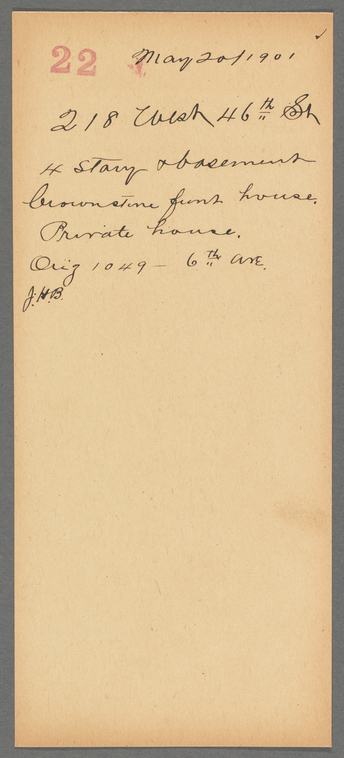 22 May 20/1901
218 West 46th St
4 Story & basement
brownstone front house.
Private house.
Orig 1049 - 6th Ave.
J.H.B.